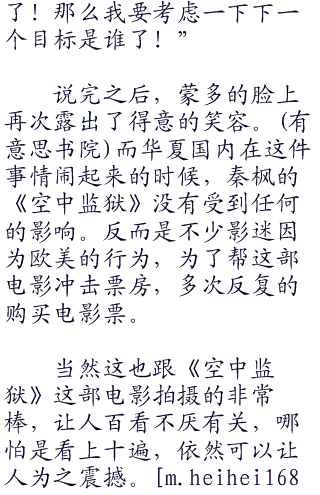 了！那么我要考虑一下下一
个目标是谁了！”
说完之后，蒙多的脸上
再次露出了得意的笑容。(有
意思书院)而华夏国内在这件
事情闹起来的时候，秦枫的
《空中监狱》没有受到任何
的影响。反而是不少影迷因
为欧美的行为，为了帮这部
电影冲击票房，多次反复的
购买电影票。
当然这也跟《空中监
狱》这部电影拍摄的非常
棒，让人百看不厌有关，哪
怕是看上十遍，依然可以让
人为之震撼。[m.heihei168